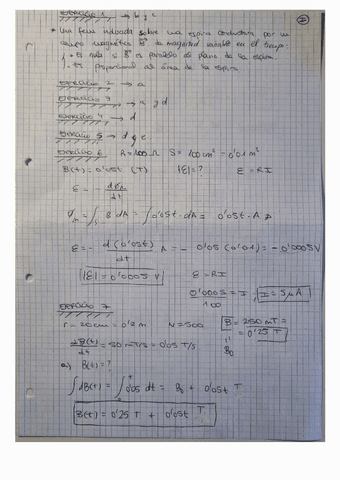 EJERCICIO 1 → b y c
* Una fem inducida sobre una espira conductora por un
campo magnético B de magnitud variable en el tiempo:
• Es nula si B es paralelo al plano de la espira.
• Es proporcional al área de la espira.
EJERCICIO 2 → a
EJERCICIO 3 → a y d
EJERCICIO 4 → d
EJERCICIO 5 → d y e
EJERCICIO 6 R = 100 Ω S = 100 cm² = 0'01 m²
B(t) = 0'05t (T) |ε| = ? ε = RI
ε = - dΦm/dt
Φm = ∫s B dA = ∫0'05t · dA = 0'05t · A
ε = - d(0'05t)/dt A = - 0'05 (0'01) = - 0'0005 V
|ε| = 0'0005 V ε = RI
0'0005/100 = I ; I = 5 μA
EJERCICIO 7
r = 20 cm = 0'2 m N = 500 B = 250 mT =
= 0'25 T
dB(t)/dt = 50 mT/s = 0'05 T/s
B₀
a) B(t) = ?
∫dB(t) = ∫0'05 dt = B₀ + 0'05t T
B(t) = 0'25 T + 0'05t T